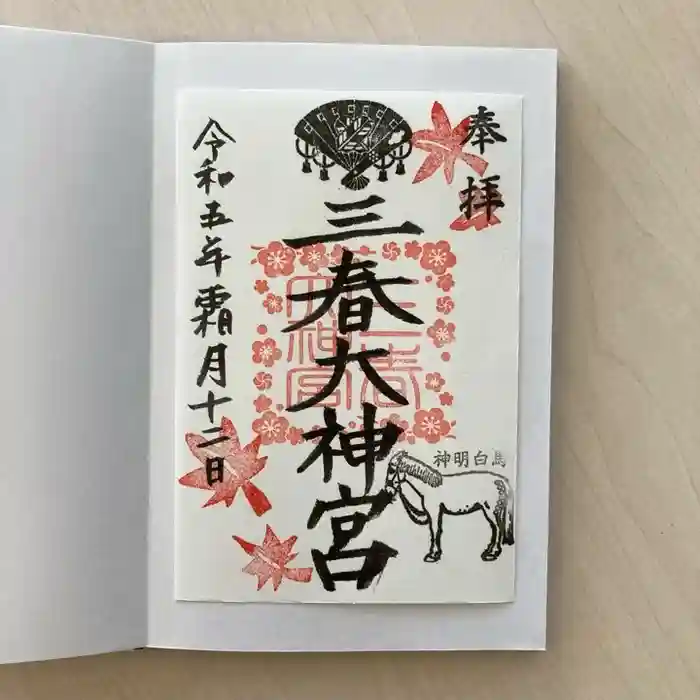 奉拝
三春大神宮
令和五年霜月十二日
三春
大神宮
神明白馬